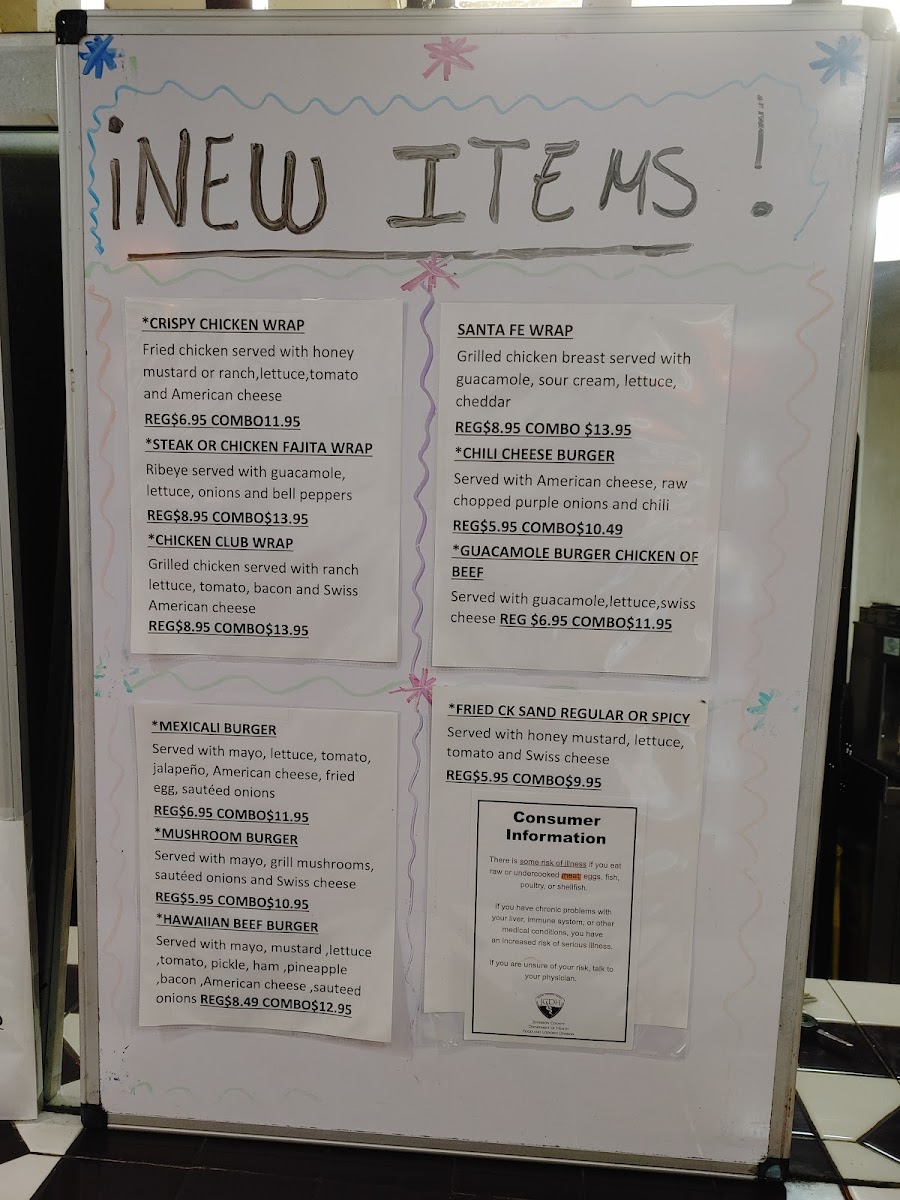 ¡NEW ITEMS!
*CRISPY CHICKEN WRAP
Fried chicken served with honey
mustard or ranch,lettuce,tomato
and American cheese
REG$6.95 COMBO11.95
*STEAK OR CHICKEN FAJITA WRAP
Ribeye served with guacamole,
lettuce, onions and bell peppers
REG$8.95 COMBO$13.95
*CHICKEN CLUB WRAP
Grilled chicken served with ranch
lettuce, tomato, bacon and Swiss
American cheese
REG$8.95 COMBO$13.95
SANTA FE WRAP
Grilled chicken breast served with
guacamole, sour cream, lettuce,
cheddar
REG$8.95 COMBO $13.95
*CHILI CHEESE BURGER
Served with American cheese, raw
chopped purple onions and chili
REG$5.95 COMBO$10.49
*GUACAMOLE BURGER CHICKEN OF
BEEF
Served with guacamole,lettuce,swiss
cheese REG $6.95 COMBO$11.95
*MEXICALI BURGER
Served with mayo, lettuce, tomato,
jalapeño, American cheese, fried
egg, sautéed onions
REG$6.95 COMBO$11.95
*MUSHROOM BURGER
Served with mayo, grill mushrooms,
sautéed onions and Swiss cheese
REG$5.95 COMBO$10.95
*HAWAIIAN BEEF BURGER
Served with mayo, mustard ,lettuce
,tomato, pickle, ham ,pineapple
,bacon ,American cheese ,sauteed
onions REG$8.49 COMBO$12.95
*FRIED CK SAND REGULAR OR SPICY
Served with honey mustard, lettuce,
tomato and Swiss cheese
REG$5.95 COMBO$9.95
Consumer
Information
There is some risk of illness if you eat
raw or undercooked meat, eggs, fish,
poultry, or shellfish.
If you have chronic problems with
your liver, immune system, or other
medical conditions, you have
an increased risk of serious illness.
If you are unsure of your risk, talk to
your physician.